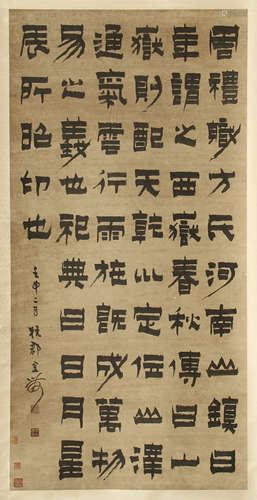 周禮職方氏河南山鎮曰
華謂之西嶽春秋傳曰山
嶽則配天乾巛定位山澤
通氣雲行雨施既成萬物
易之義也祀典曰日月星
辰所昭卬也
壬申二月 郡金